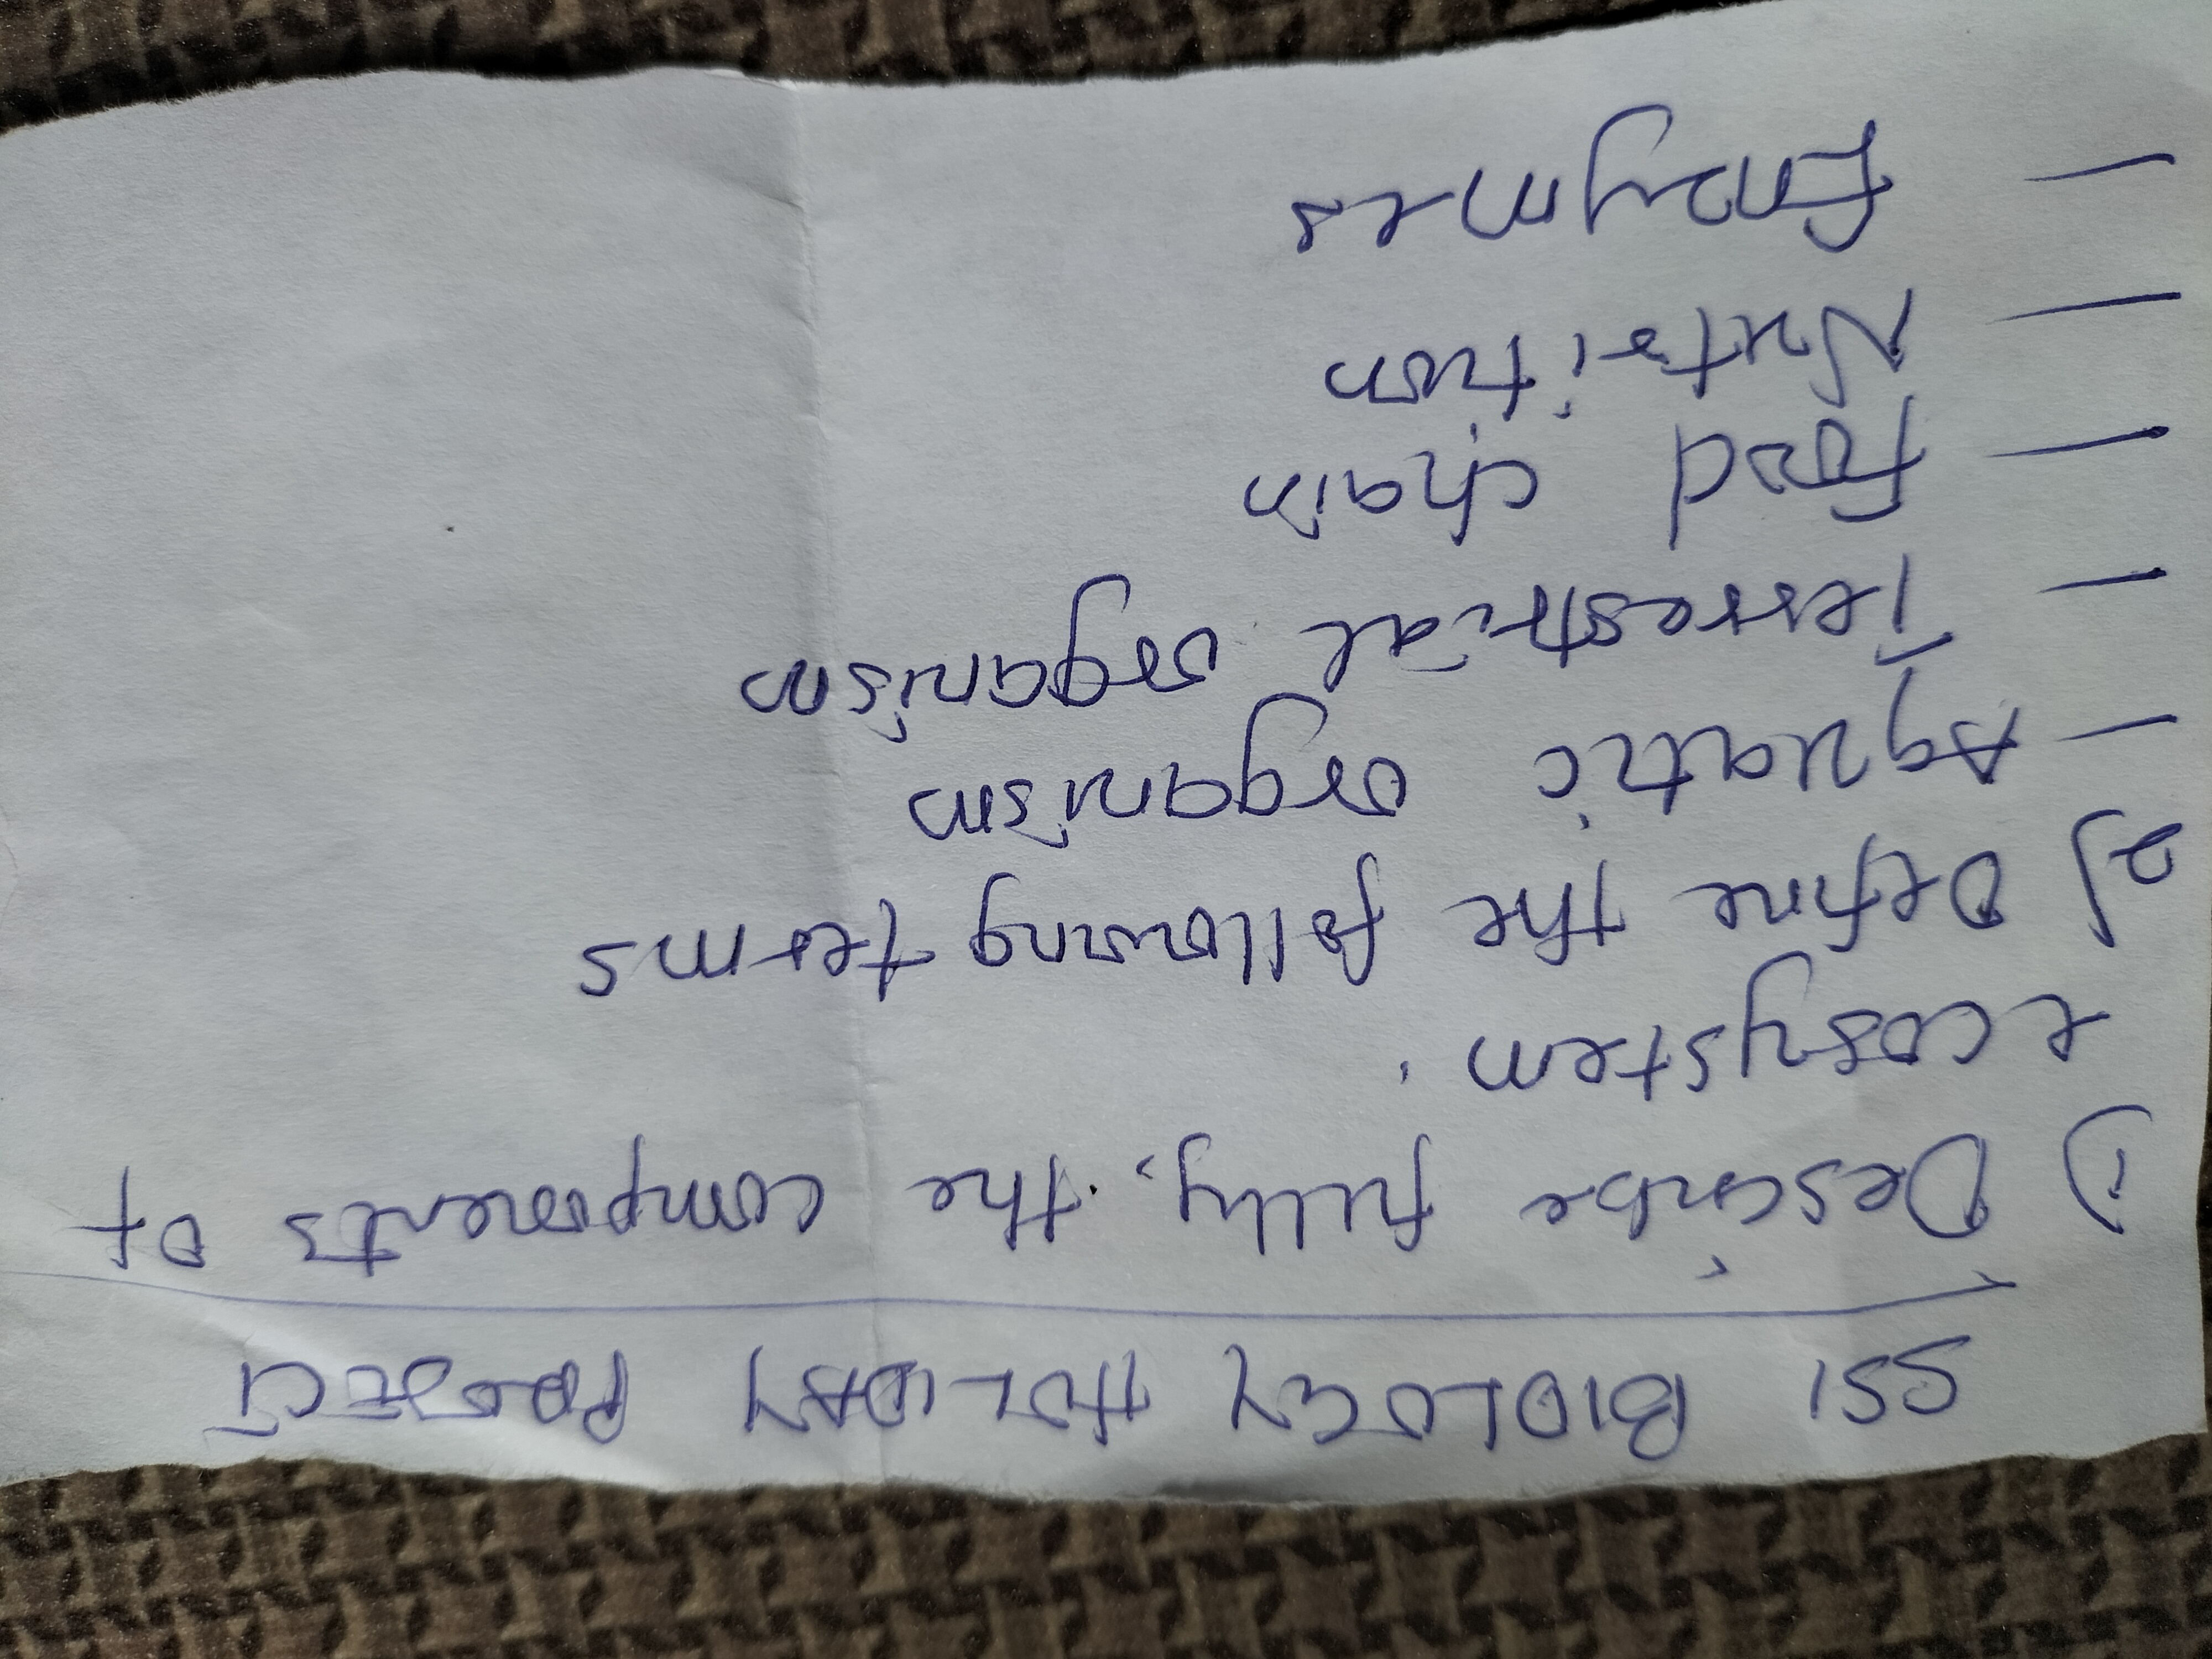 SS1 BIOLOGY HOLIDAY PROJECT
1) Describe fully, the components of
ecosystem.
2) Define the following terms
- Aquatic organism
- Terrestrial organism
- Food chain
- Nutrition
- Enzymes